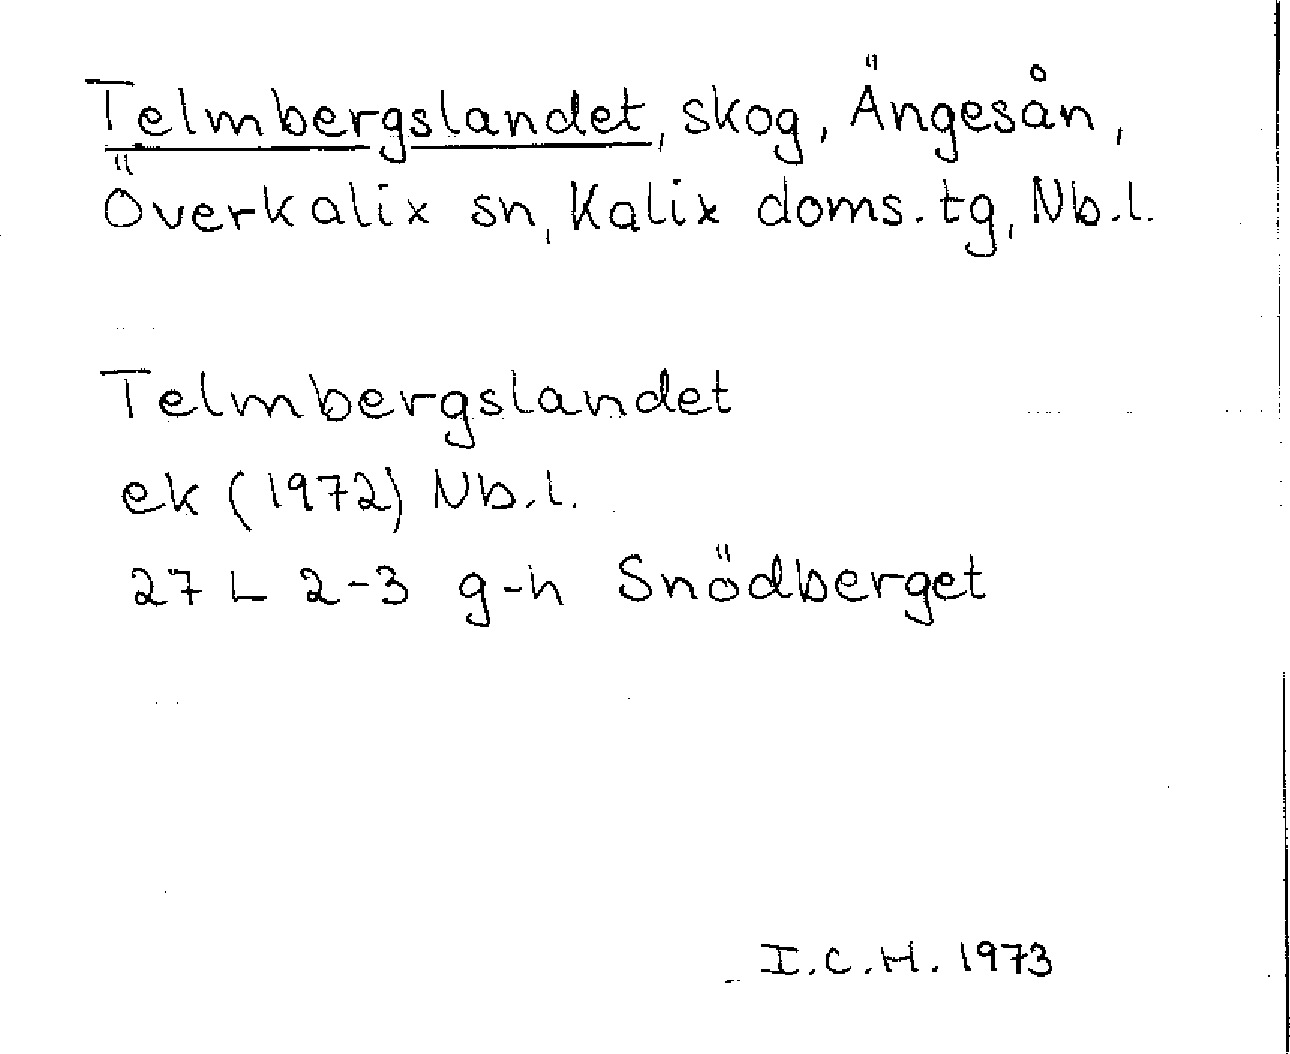 Telmbergslandet, skog, Ängesån,
Överkalix sn, Kalix doms.tg, Nb.l.
Telmbergslandet
ek (1972) Nb.l.
27 L 2-3 g-h Snödberget
I.C.H. 1973